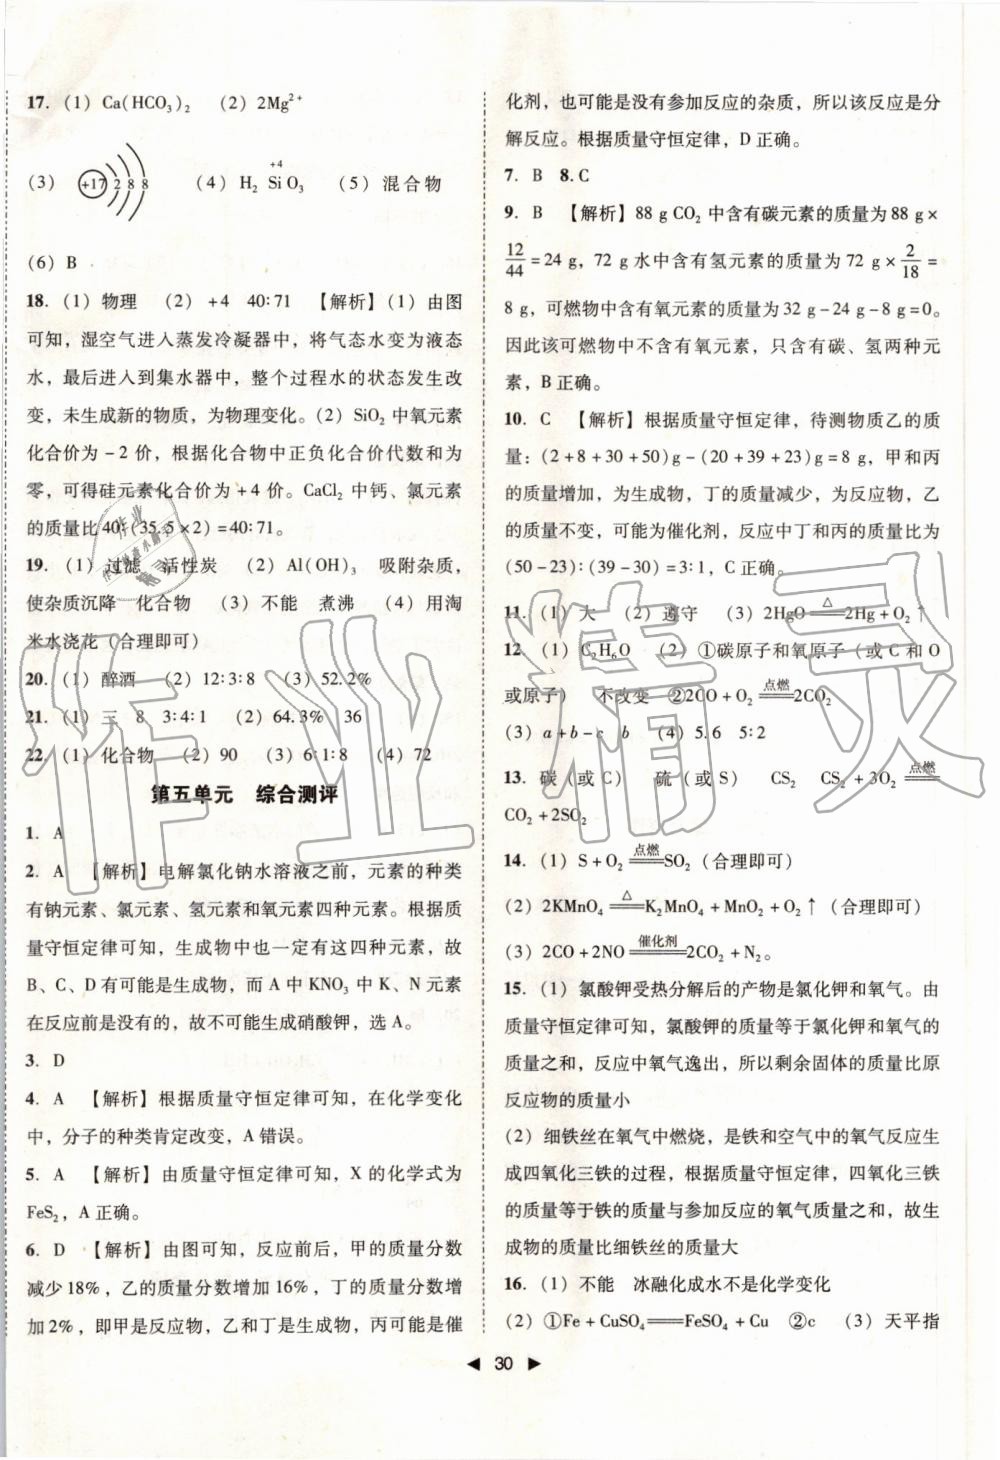 17. (1) Ca(HCO₃)₂ (2) 2Mg²⁺
(3) +17 2 8 8 (4) H₂ Si O₃ +4 (5) 混合物
(6) B
18. (1) 物理 (2) +4 40∶71 【解析】(1) 由图
可知，湿空气进入蒸发冷凝器中，将气态水变为液态
水，最后进入到集水器中，整个过程水的状态发生改
变，未生成新的物质，为物理变化。(2) SiO₂ 中氧元素
化合价为－2 价，根据化合物中正负化合价代数和为
零，可得硅元素化合价为＋4 价。CaCl₂ 中钙、氯元素
的质量比 40∶(35.5×2)=40∶71。
19. (1) 过滤 活性炭 (2) Al(OH)₃ 吸附杂质，
使杂质沉降 化合物 (3) 不能 煮沸 (4) 用淘
米水浇花(合理即可)
20. (1) 醉酒 (2) 12∶3∶8 (3) 52.2%
21. (1) 三 8 3∶4∶1 (2) 64.3% 36
22. (1) 化合物 (2) 90 (3) 6∶1∶8 (4) 72
第五单元 综合测评
1. A
2. A 【解析】电解氯化钠水溶液之前，元素的种类
有钠元素、氯元素、氢元素和氧元素四种元素。根据质
量守恒定律可知，生成物中也一定有这四种元素，故
B、C、D 有可能是生成物，而 A 中 KNO₃ 中 K、N 元素
在反应前是没有的，故不可能生成硝酸钾，选 A。
3. D
4. A 【解析】根据质量守恒定律可知，在化学变化
中，分子的种类肯定改变，A 错误。
5. A 【解析】由质量守恒定律可知，X 的化学式为
FeS₂，A 正确。
6. D 【解析】由图可知，反应前后，甲的质量分数
减少 18%，乙的质量分数增加 16%，丁的质量分数增
加 2%，即甲是反应物，乙和丁是生成物，丙可能是催
化剂，也可能是没有参加反应的杂质，所以该反应是分
解反应。根据质量守恒定律，D 正确。
7. B 8. C
9. B 【解析】88 g CO₂ 中含有碳元素的质量为 88 g×
12/44=24 g，72 g 水中含有氢元素的质量为 72 g×2/18=
8 g，可燃物中含有氧元素的质量为 32 g－24 g－8 g=0。
因此该可燃物中不含有氧元素，只含有碳、氢两种元
素，B 正确。
10. C 【解析】根据质量守恒定律，待测物质乙的质
量：(2+8+30+50)g－(20+39+23)g=8 g，甲和丙
的质量增加，为生成物，丁的质量减少，为反应物，乙
的质量不变，可能为催化剂，反应中丁和丙的质量比为
(50－23)∶(39－30)=3∶1，C 正确。
11. (1) 大 (2) 遵守 (3) 2HgO ══△══ 2Hg+O₂↑
12. (1) C₂H₆O (2) ①碳原子和氧原子(或 C 和 O
或原子) 不改变 ②2CO+O₂ ══点燃══ 2CO₂
(3) a+b－c b (4) 5.6 5∶2
13. 碳(或 C) 硫(或 S) CS₂ CS₂+3O₂ ══点燃══
CO₂+2SO₂
14. (1) S+O₂ ══点燃══ SO₂ (合理即可)
(2) 2KMnO₄ ══△══ K₂MnO₄+MnO₂+O₂↑(合理即可)
(3) 2CO+2NO ══催化剂══ 2CO₂+N₂。
15. (1) 氯酸钾受热分解后的产物是氯化钾和氧气。由
质量守恒定律可知，氯酸钾的质量等于氯化钾和氧气的
质量之和，反应中氧气逸出，所以剩余固体的质量比原
反应物的质量小
(2) 细铁丝在氧气中燃烧，是铁和空气中的氧气反应生
成四氧化三铁的过程，根据质量守恒定律，四氧化三铁
的质量等于铁的质量与参加反应的氧气质量之和，故生
成物的质量比细铁丝的质量大
16. (1) 不能 冰融化成水不是化学变化
(2) ①Fe+CuSO₄ ══ FeSO₄+Cu ②c (3) 天平指
◀ 30 ▶
作业精灵